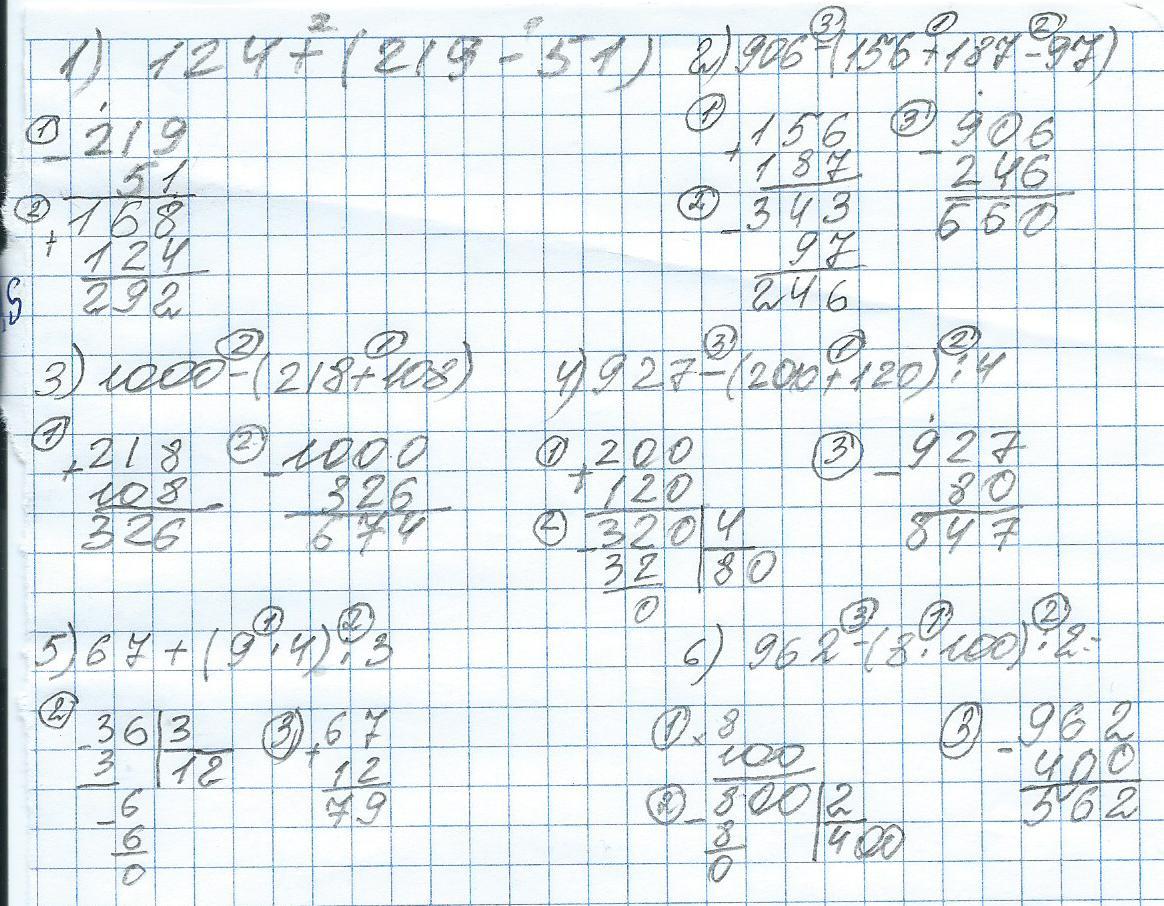 1) 124+(219-51)
① 219
- 51
② 168
+ 124
292
2) 906-(156+187-97)
① 156
+ 187
② 343
- 97
246
③ 906
- 246
660
3) 1000-(218+108)
① 218
+ 108
326
② 1000
- 326
674
4) 927-(200+120):4
① 200
+ 120
② 320 | 4
- 32 | 80
0
③ 927
- 80
847
5) 67+(9·4):3
② 36 | 3
- 3 | 12
- 6
6
0
③ 67
+ 12
79
6) 962-(8·100):2=
① 8
× 100
② 800 | 2
- 8 | 400
0
③ 962
- 400
562